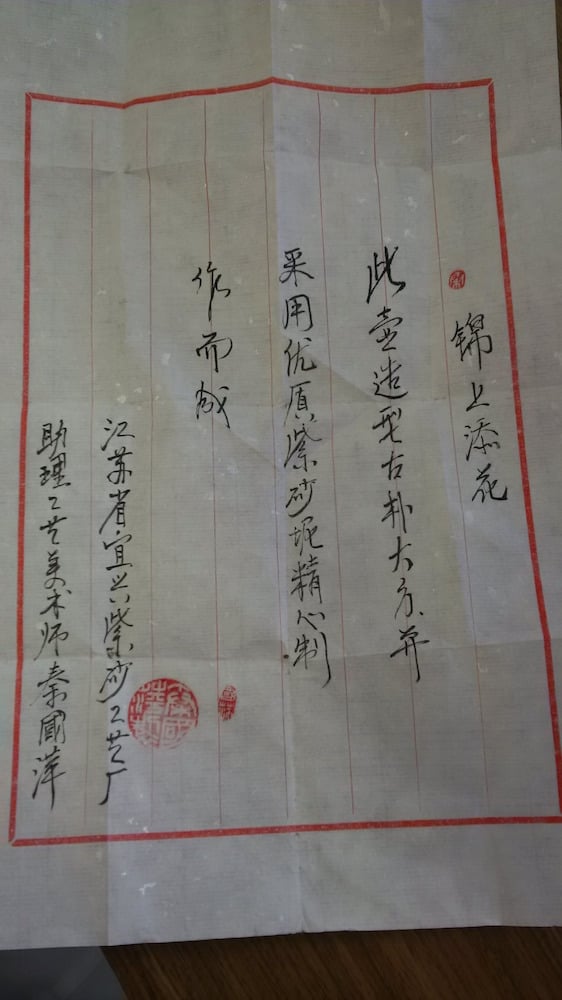 锦上添花
此壶造型古朴大方.并
采用优质紫砂坭精心制
作而成
江苏省宜兴紫砂工艺厂
助理工艺美术师秦國萍